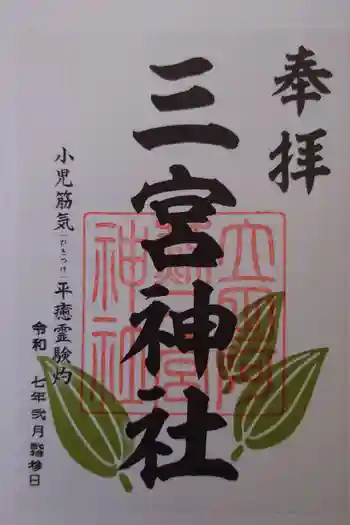 奉拝
三宮神社
小児筋気(ひきつけ)平癒霊験灼
令和 七年弐月 参日